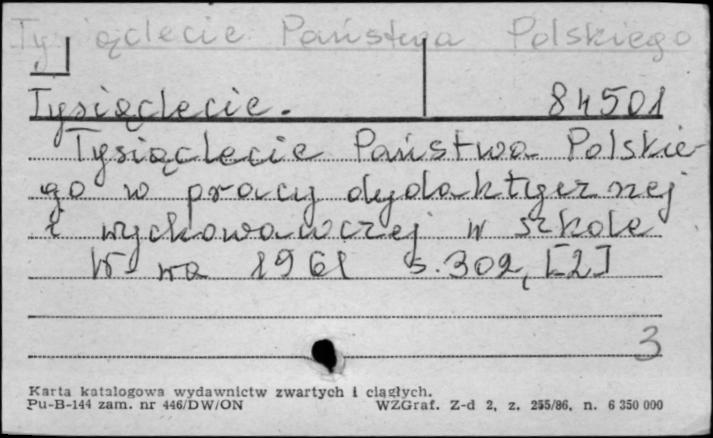 Tysiąclecie Państwa Polskiego
Tysiąclecie. 84501
Tysiąclecie Państwa Polskie-
go w pracy dydaktycznej
i wychowawczej w szkole
W-wa 1961 s. 302, [2]
3
Karta katalogowa wydawnictw zwartych i ciągłych.
Pu-B-144 zam. nr 446/DW/ON WZGraf. Z-d 2, z. 255/86, n. 6 350 000